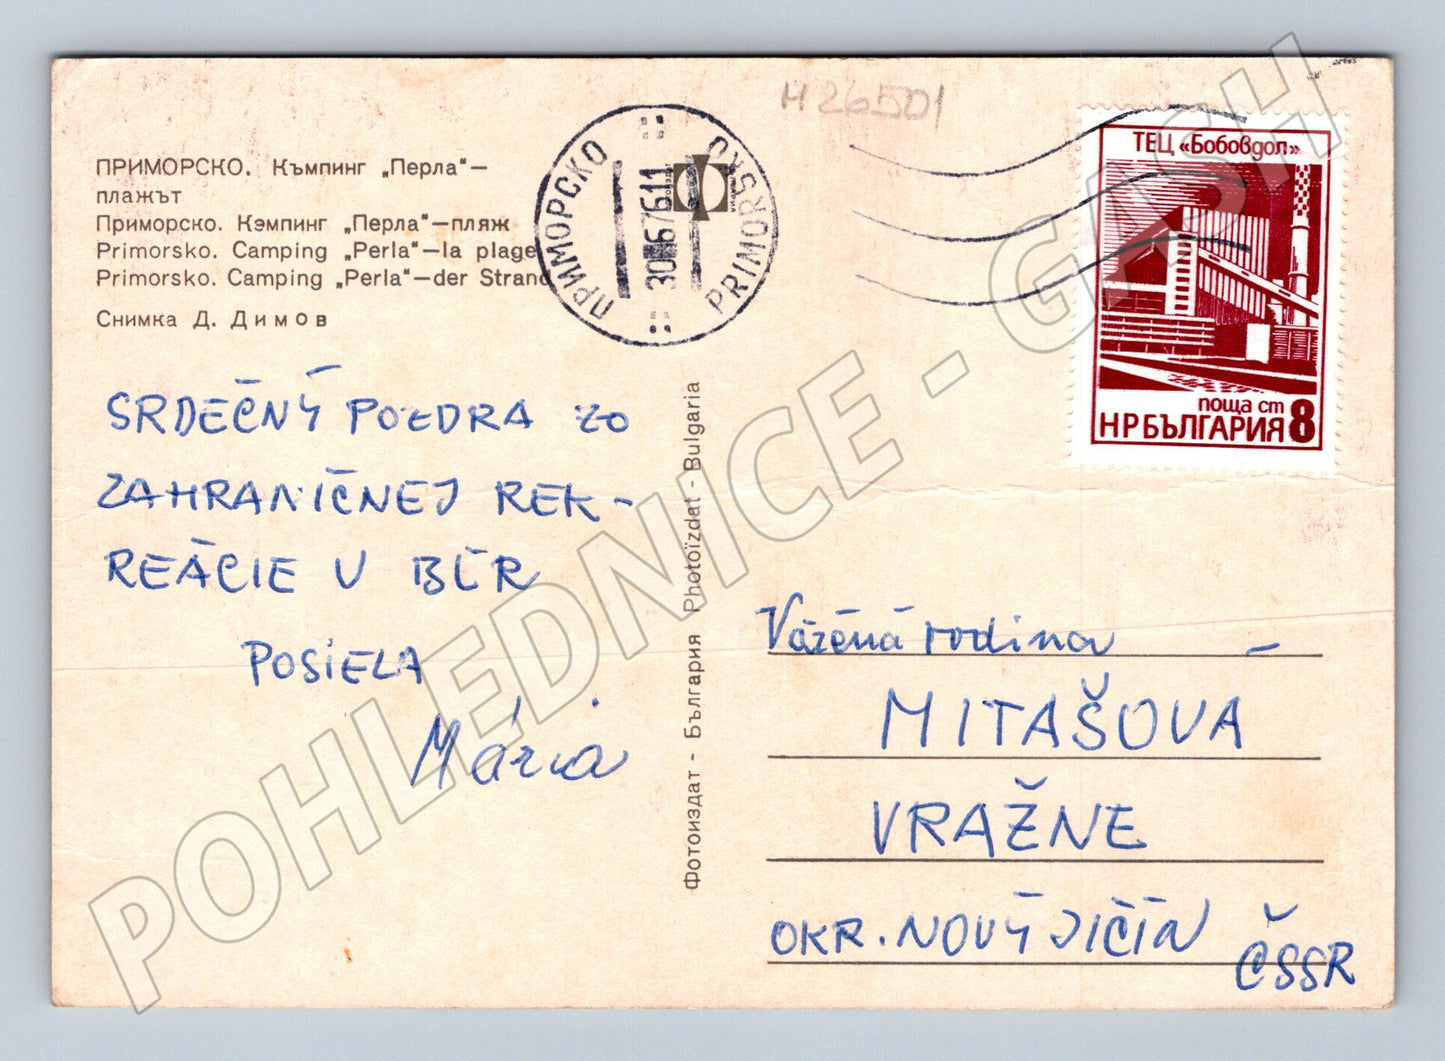 М 26501
ПРИМОРСКО. Къмпинг „Перла“—
плажът
Приморско. Кэмпинг „Перла“—пляж
Primorsko. Camping „Perla“—la plage
Primorsko. Camping „Perla“—der Strand
Снимка Д. Димов
ПРИМОРСКО
30.6.76 11
PRIMORSKO
ТЕЦ «Бобовдол»
поща ст 8
НР БЪЛГАРИЯ
SRDEČNÝ POZDRA ZO
ZAHRANIČNEJ REK-
REÁCIE V BĽR
POSIELA
Mária
Фотоиздат - България Photoïzdat - Bulgaria
Vážená rodina -
MITAŠOVA
VRAŽNE
OKR. NOVÝ JIČÍN
ČSSR
POHLEDNICE - GASH